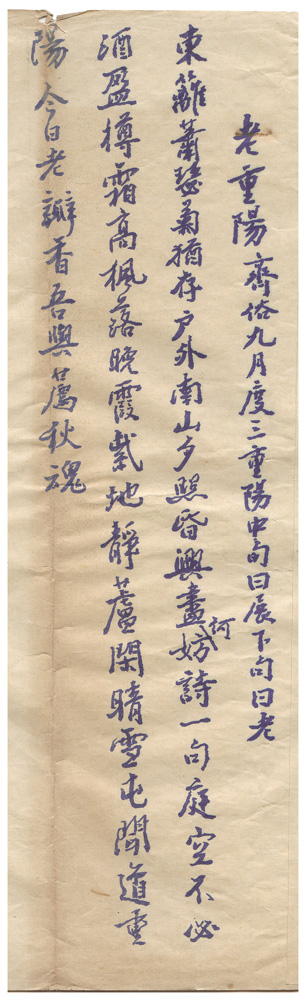 老重陽齊俗九月度三重陽中旬曰展下旬曰老
東籬蕭瑟菊猶存戶外南山夕照昏興盡妨何詩一句庭空不必
酒盈樽霜高楓落晚霞紫地靜蘆閑晴雪屯聞道重
陽今日老瓣香吾與薦秋魂